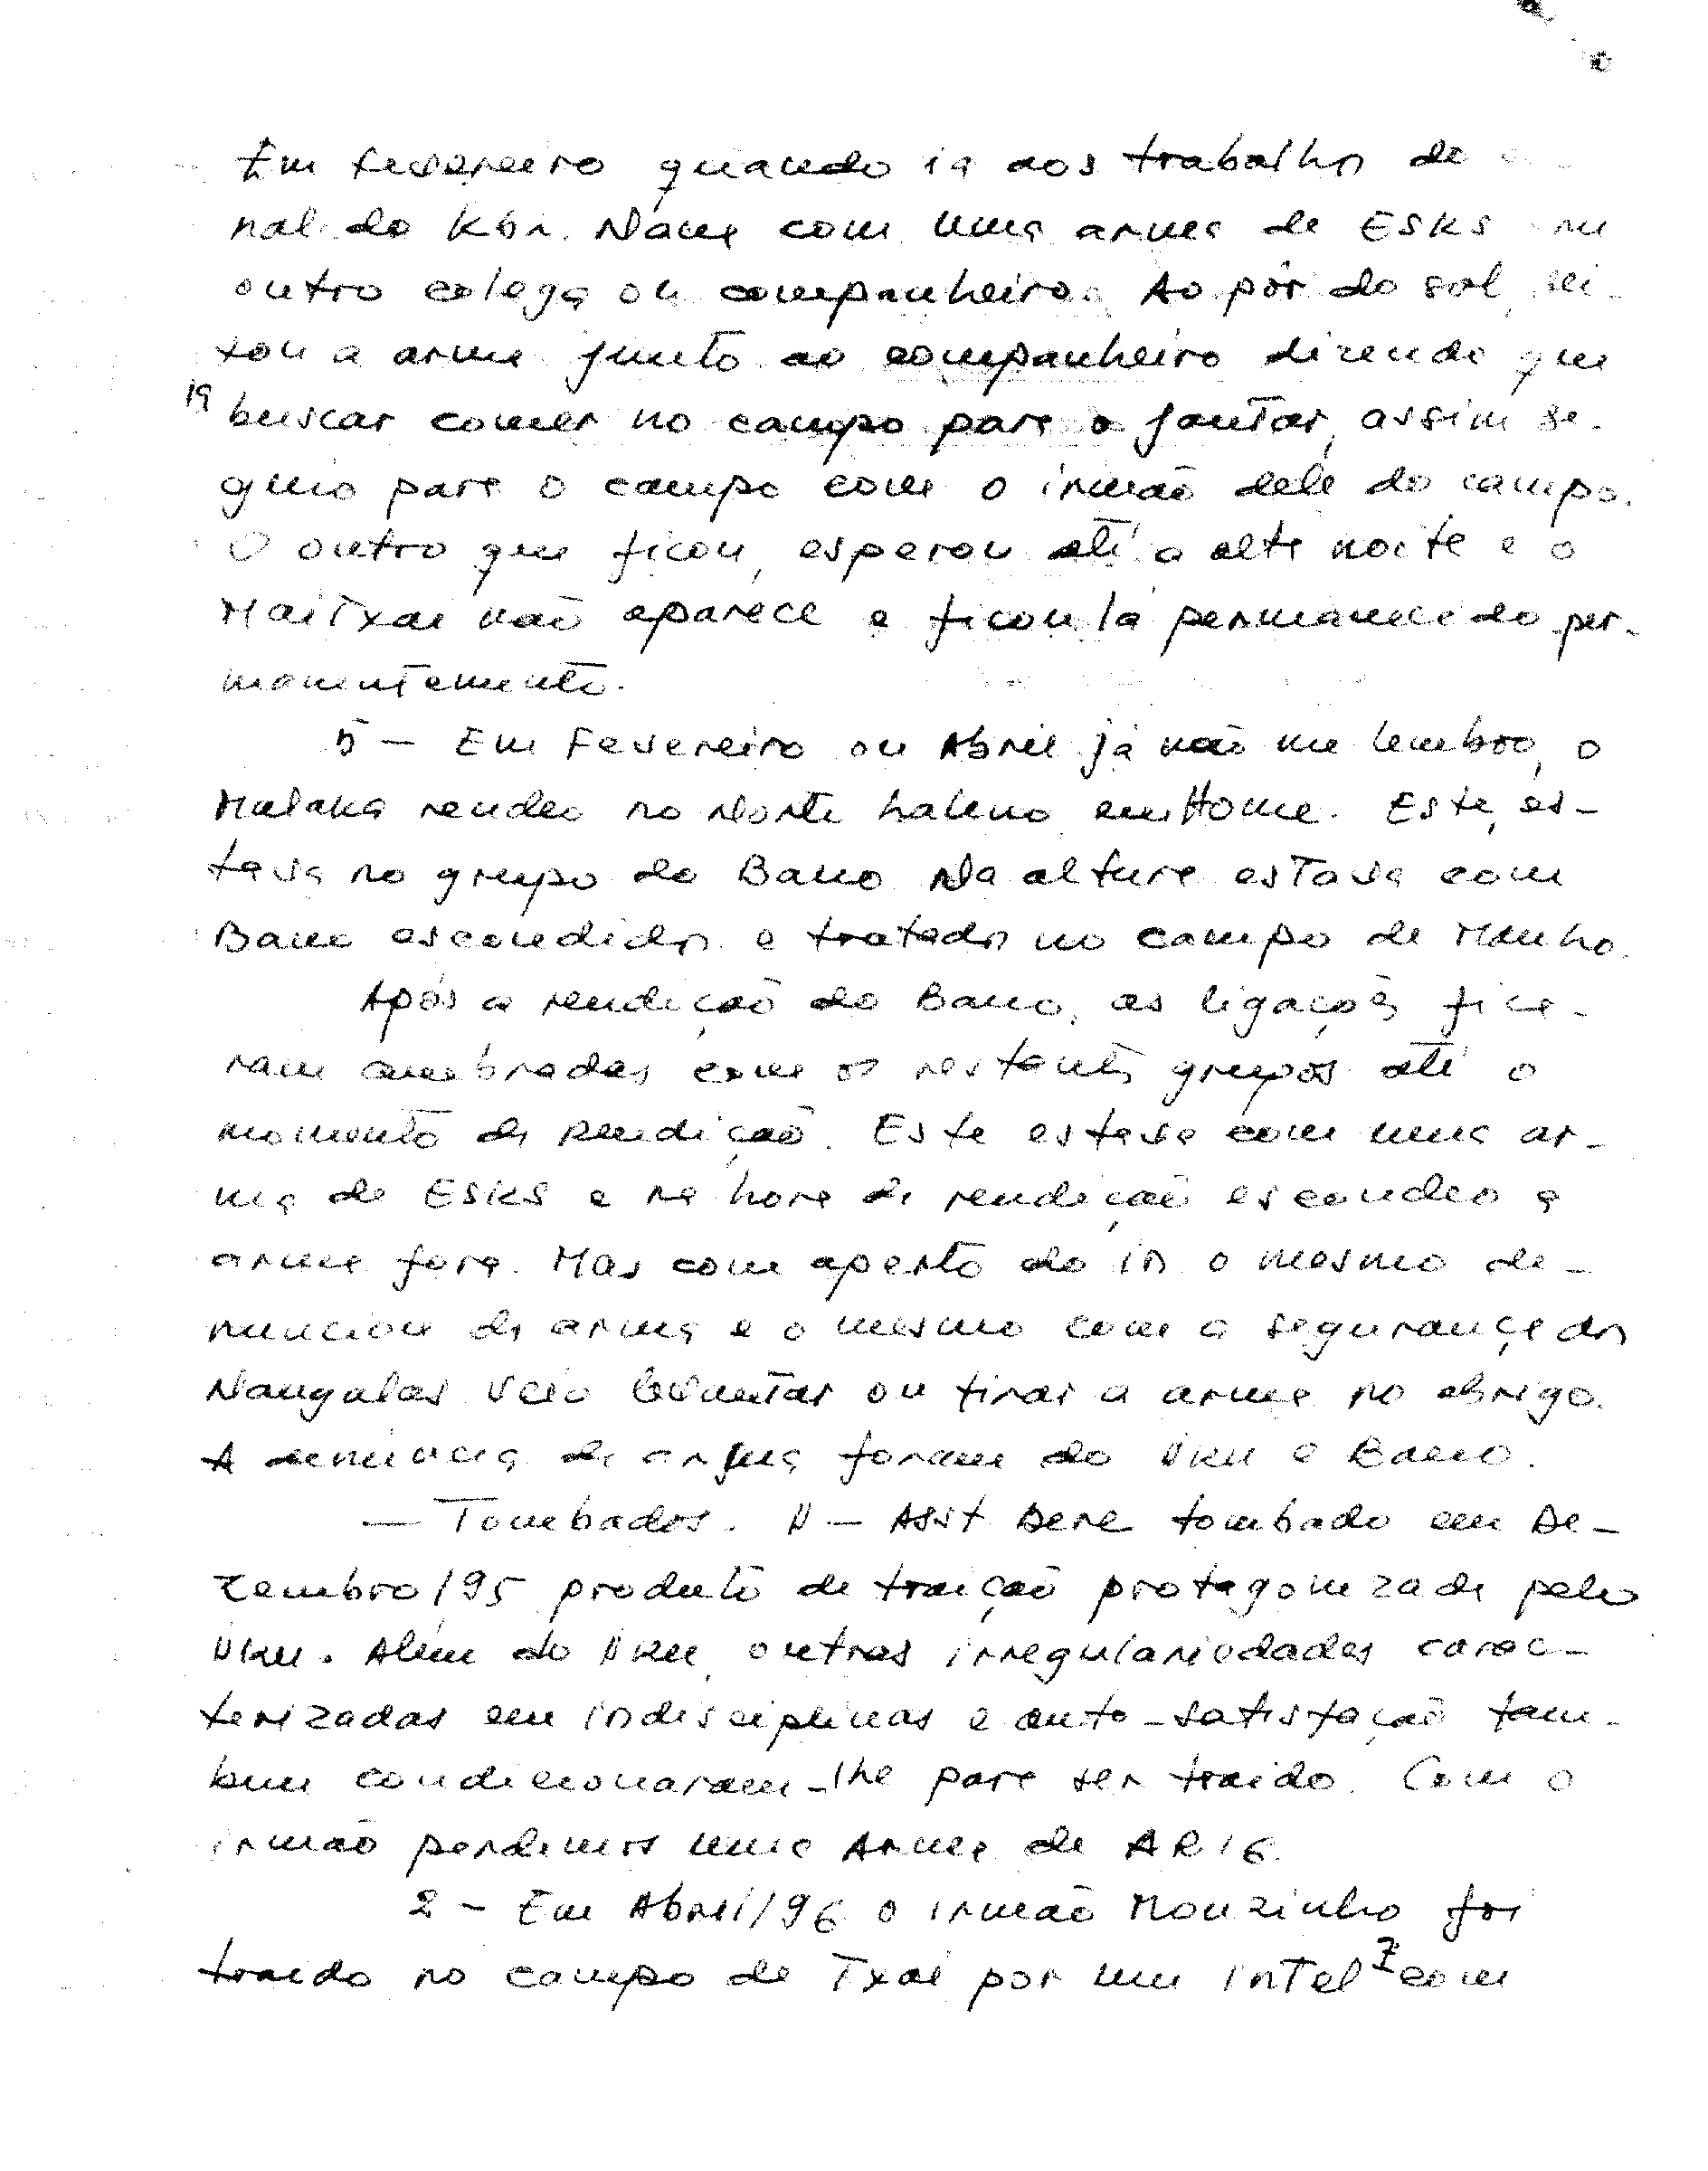 Em fevereiro quando ia aos trabalhos do
nal do Kbr. Name com uma arma de ESKS
outro colega ou companheiro. Ao pôr do sol, dei-
xou a arma junto ao companheiro dizendo que
ia buscar comer no campo para o jantar, assim se-
guio para o campo com o irmão dele do campo.
O outro que ficou, esperou até a alta noite e o
MaiTxai não aparece e ficou lá permanecido per-
manentemente.
5 - Em Fevereiro ou Abril já não me lembro, o
Malaka rendeo no Norte haluno em Home. Este, es-
tava no grupo do Bano Na altura estava com
Bano escondidos e tratados no campo de Manho.
Após a rendição do Bano, as ligações fica-
ram quebradas com os restantes grupos até o
momento da rendição. Este estava com uma ar-
ma de ESKS e na hora da rendição escondeo a
arma fora. Mas com aperto do in o mesmo de-
nunciou da arma e o mesmo com a segurança dos
Nangalas veio levantar ou tirar a arma no abrigo.
A denúncia da arma foram do Uku e Bano.
— Tombados. 1) - Asst Dere tombado em De-
zembro/95 produto de traição protagonizada pelo
Uku. Além do Uku, outras irregulariedades carac-
terizadas em indisciplinas e auto-satisfação tam-
bem condicionaram-lhe para ser traido. Com o
irmão perdimos uma Arma de AR16.
2 - Em Abril/96 o irmão Mouzinho foi
traido no campo de Txai por um inTel com